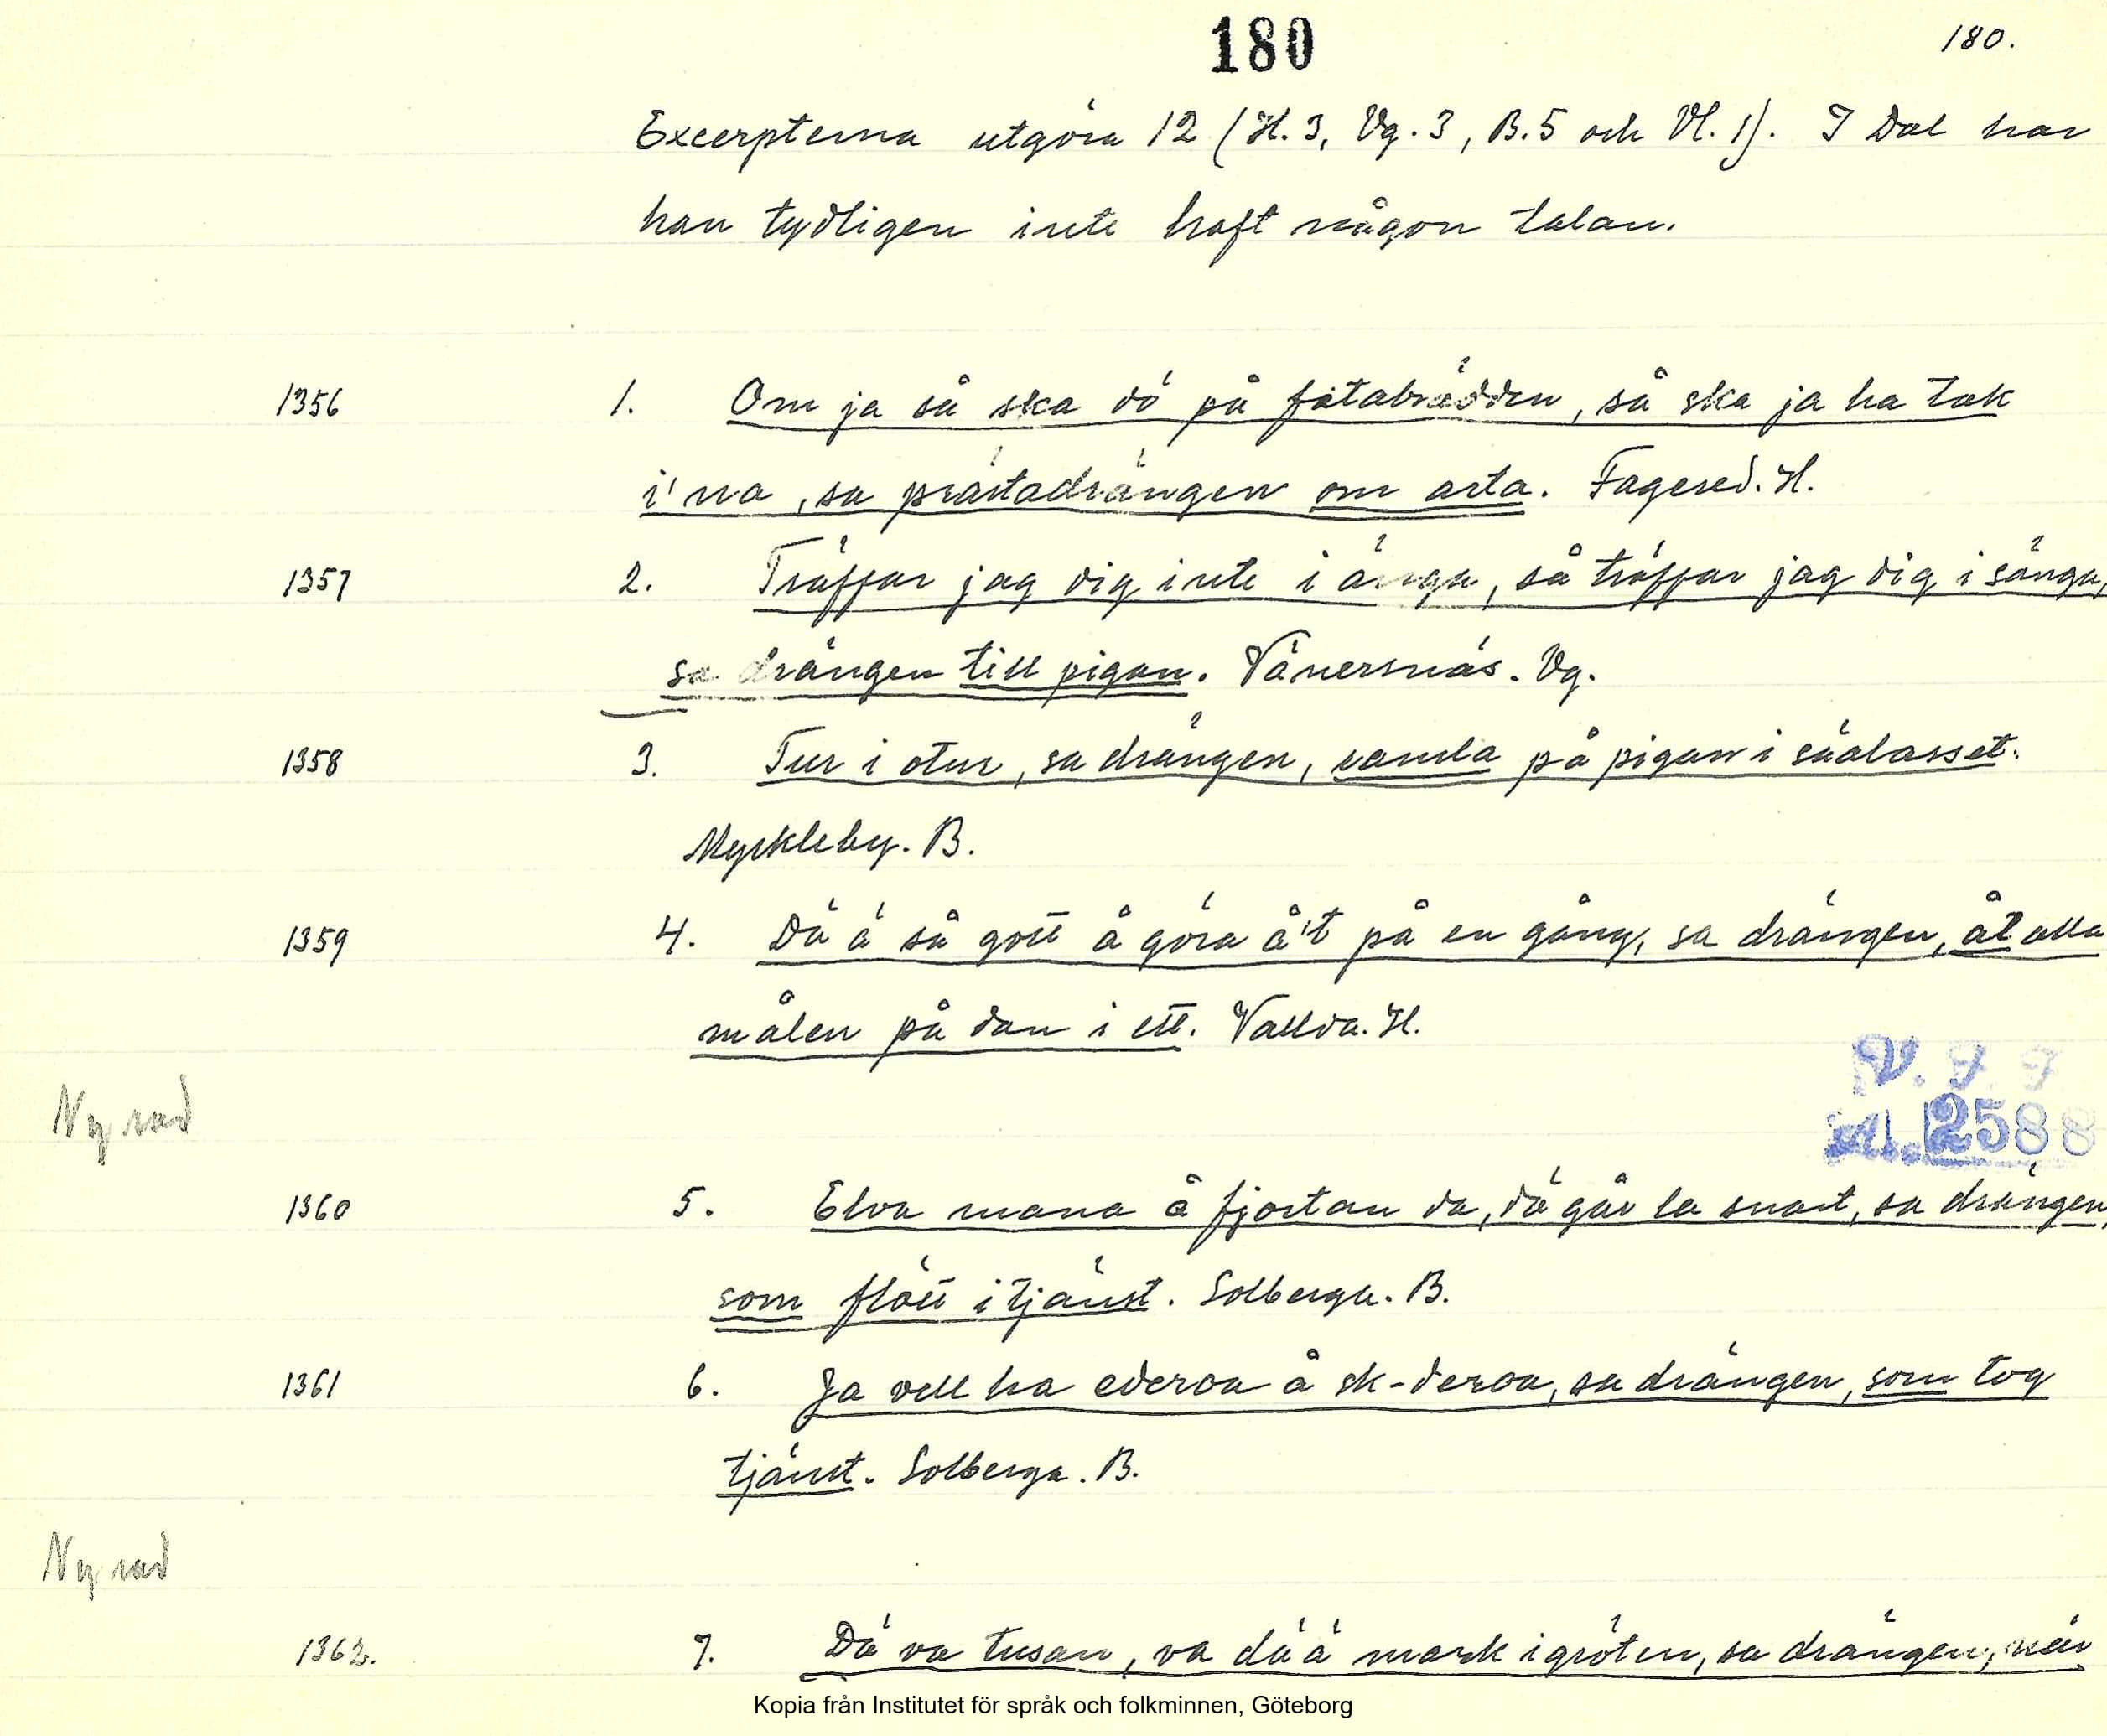 180
180.
Excerpterna utgöra 12 (H. 3, Vg. 3, B. 5 och Vl. 1). I Dal har
han tydligen inte haft någon talan.
1356 1. Om ja så ska dö på fötabrädden, så ska ja ha tak
i'na, sa prästadrängen om arta. Fagered. H.
1357 2. Träffar jag dig inte i änga, så träffar jag dig i sänga,
sa drängen till pigan. Vänersnäs. Vg.
1358 3. Tur i otur, sa drängen, ramla på pigan i säalasset.
Myckleby. B.
1359 4. Dä ä så gott å göra å't på en gång, sa drängen, åt alla
målen på dan i ett. Vallda. H.
V. F. F
A. 2588
Ny rad
1360 5. Elva mana å fjortan da, dä går la snart, sa drängen,
som flött i tjänst. Solberga. B.
1361 6. Ja vell ha ederoa å sk-deroa, sa drängen, som tog
tjänst. Solberga. B.
Ny rad
1362. 7. Dä va tusan, va dä ä mark i gröten, sa drängen, när
Kopia från Institutet för språk och folkminnen, Göteborg